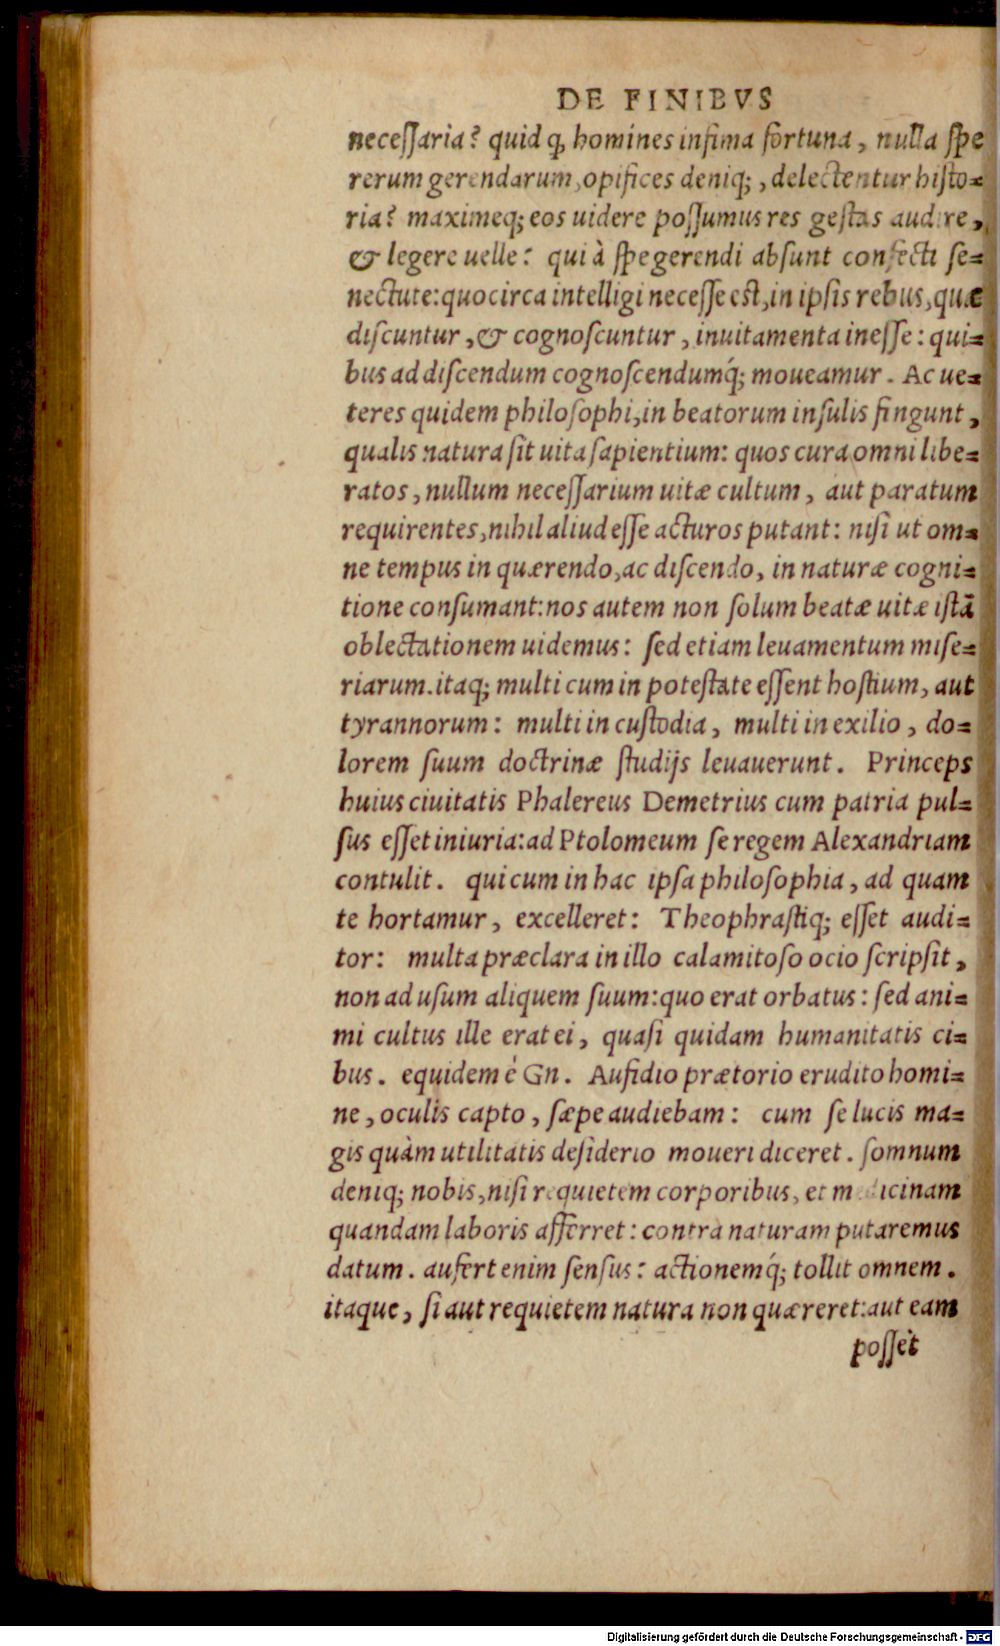 DE FINIBVS
neceſſaria? quid ꝙ homines infima fortuna, nulla ſpe
rerum gerendarum, opifices deniq;, delectentur hiſto-
ria? maximeq; eos uidere poſſumus res geſtas audire,
& legere uelle: qui à ſpe gerendi abſunt confecti ſe-
nectute: quocirca intelligi neceſſe eſt, in ipſis rebus, quæ
diſcuntur, & cognoſcuntur, inuitamenta ineſſe: qui-
bus ad diſcendum cognoſcendumq́; moueamur. Ac ue-
teres quidem philoſophi, in beatorum inſulis fingunt,
qualis natura ſit uita ſapientium: quos cura omni libe-
ratos, nullum neceſſarium uitæ cultum, aut paratum
requirentes, nihil aliud eſſe acturos putant: niſi ut om-
ne tempus in quærendo, ac diſcendo, in naturæ cogni-
tione conſumant: nos autem non ſolum beatæ uitæ iſtā
oblectationem uidemus: ſed etiam leuamentum miſe-
riarum. itaq; multi cum in poteſtate eſſent hoſtium, aut
tyrannorum: multi in cuſtodia, multi in exilio, do-
lorem ſuum doctrinæ ſtudijs leuauerunt. Princeps
huius ciuitatis Phalereus Demetrius cum patria pul-
ſus eſſet iniuria: ad Ptolomeum ſe regem Alexandriam
contulit. qui cum in hac ipſa philoſophia, ad quam
te hortamur, excelleret: Theophraſtiq; eſſet audi-
tor: multa præclara in illo calamitoſo ocio ſcripſit,
non ad uſum aliquem ſuum: quo erat orbatus: ſed ani-
mi cultus ille erat ei, quaſi quidam humanitatis ci-
bus. equidem è Gn. Aufidio prætorio erudito homi-
ne, oculis capto, ſæpe audiebam: cum ſe lucis ma-
gis quàm utilitatis deſiderio moueri diceret. ſomnum
deniq; nobis, niſi requietem corporibus, et medicinam
quandam laboris afferret: contra naturam putaremus
datum. aufert enim ſenſus: actionemq́; tollit omnem.
itaque, ſi aut requietem natura non quæreret: aut eam
poſſet
Digitalisierung gefördert durch die Deutsche Forschungsgemeinschaft - DFG